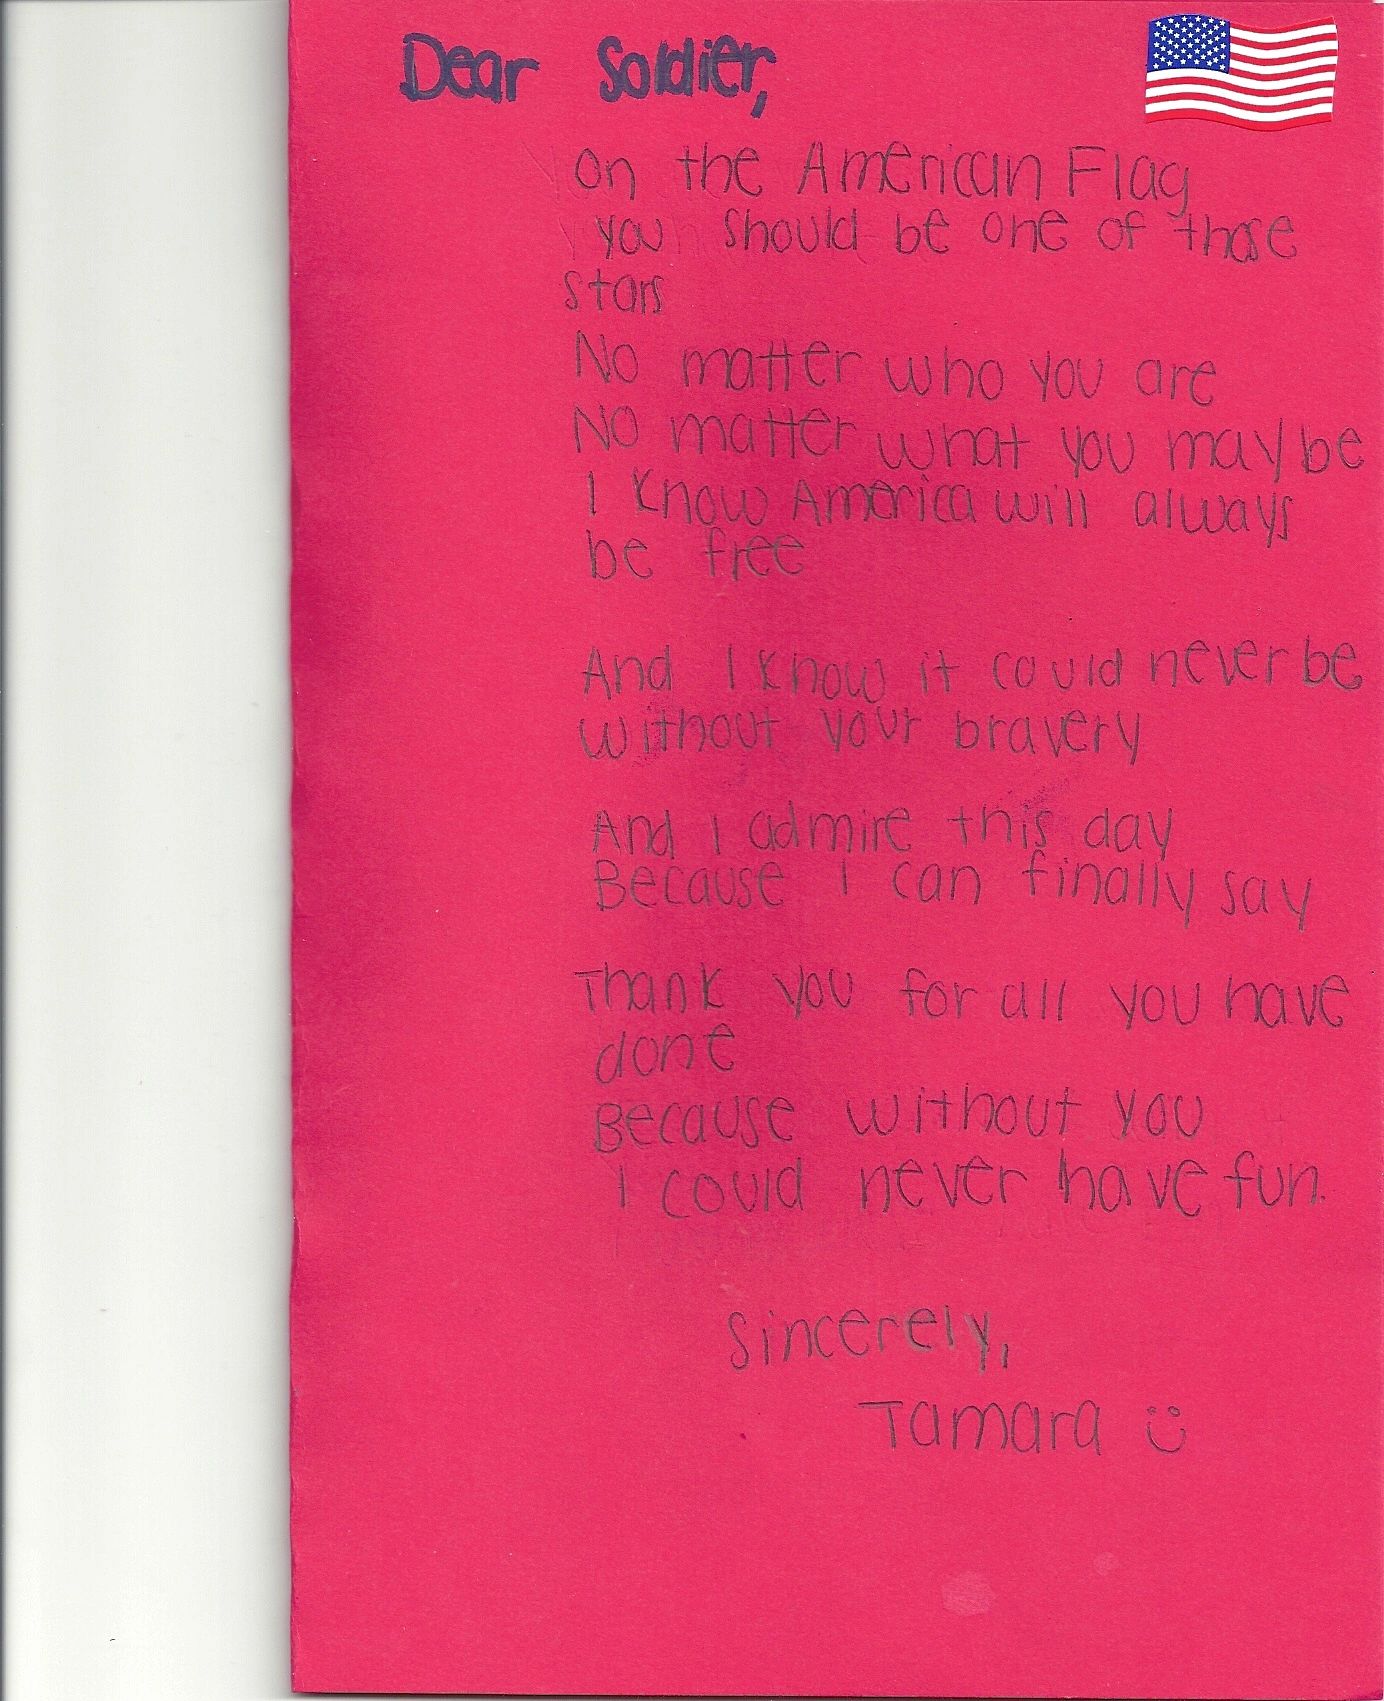 Dear Soldier,
On the American Flag
you should be one of those
stars
No matter who you are
No matter what you may be
I know America will always
be free
And I know it could never be
without your bravery
And I admire this day
Because I can finally say
Thank you for all you have
done
Because without you
I could never have fun.
Sincerely,
Tamara